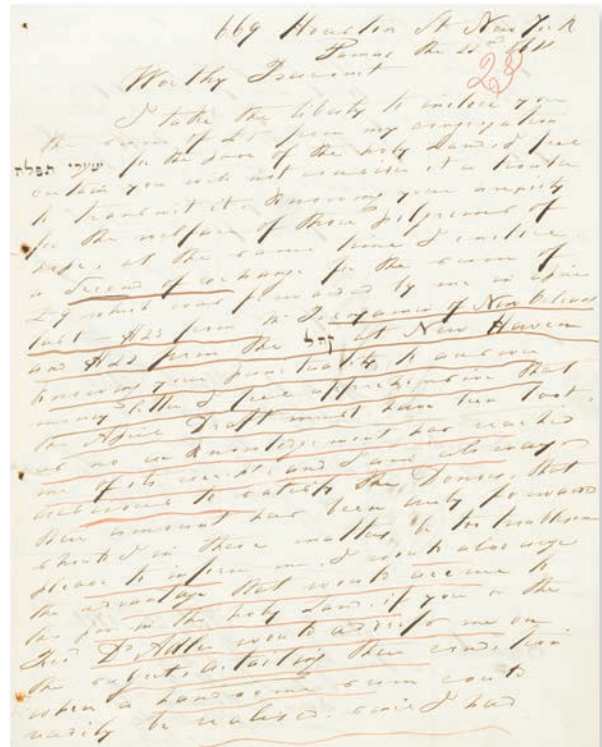 669 Houston St New York
the 22nd
28
Worthy
I take the liberty to inclose you
the sum of £5 from my congregation
שערי תפלה for the poor of the holy Land I feel
certain you will not consider it a trouble
to transmit it, knowing your anxiety
for the welfare of those pilgrims of
hope, at the same time I inclose
a Second of exchange for the sum of
£9 which was forwarded by me in April
last — $23 from the of New Orleans
and $22 from the קהל at New Haven
Knowing your punctuality to answer
every letter I feel apprehensive that
the April Draft must have been lost,
as no acknowledgement has reached
me of its receipt, and I am always
anxious to satisfy the Donors, that
their amount has been duly forwarded
should I in these matters be too
please to inform me, I would also urge
the advantage that would accrue to
the poor in the holy Land, if you or the
Revd Dr Adler would address me on
the subject detailing their condition
when a handsome sum could
readily be realised. since I had